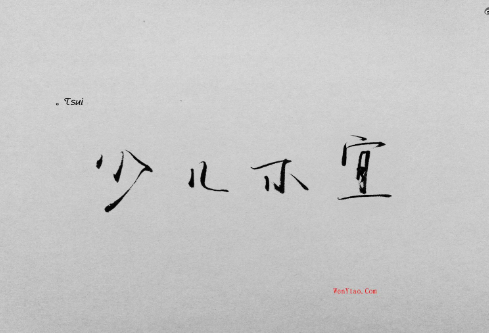 。Tsui
少儿不宜
WenYiao.Com